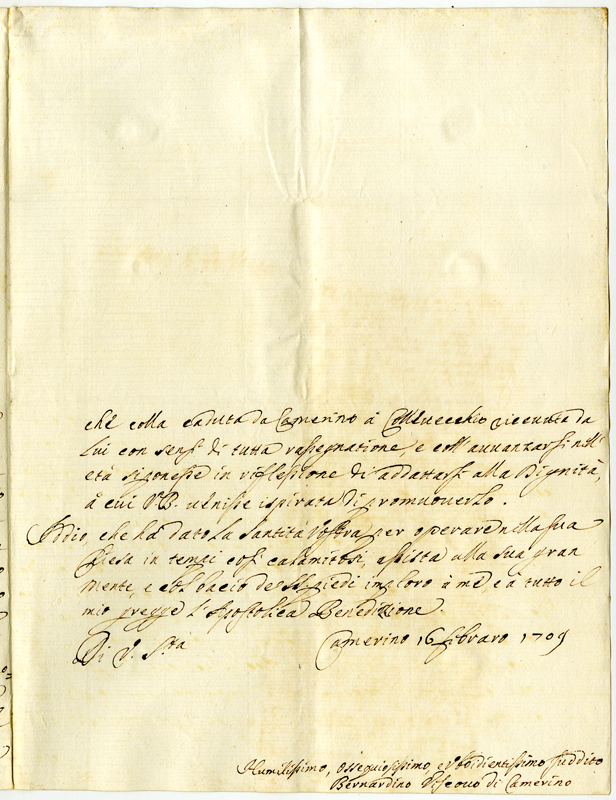 che colla caduta da Camerino à Collevecchio ricevuta da
lui con sensi di tutta rassegnatione, e coll'avvanzarsi nell'
età si ponesse in riflessione di addattarsi alla Dignità,
à cui V.B. venisse ispirata di promuoverlo.
Iddio, che ha dato la Santità Vostra per operare nella sua
Chiesa in tempi così calamitosi, assista alla sua gran
mente, e col bacio de SS. piedi imploro à me, e à tutto il
mio gregge l'Apostolica Benedizione.
Di V. S.ta
Camerino 16 febraro 1709
Humilissimo, ossequiosissimo, e Vbbidientissimo suddito
Bernardino Vescovo di Camerino